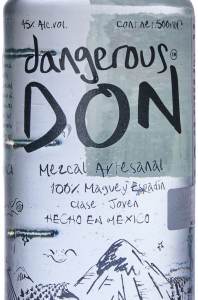 45% Alc.vol. Cont.net.500ml
dangerous
DON
Mezcal Artesanal
100% Maguey Espadín
Clase: Joven
HECHO EN MEXICO